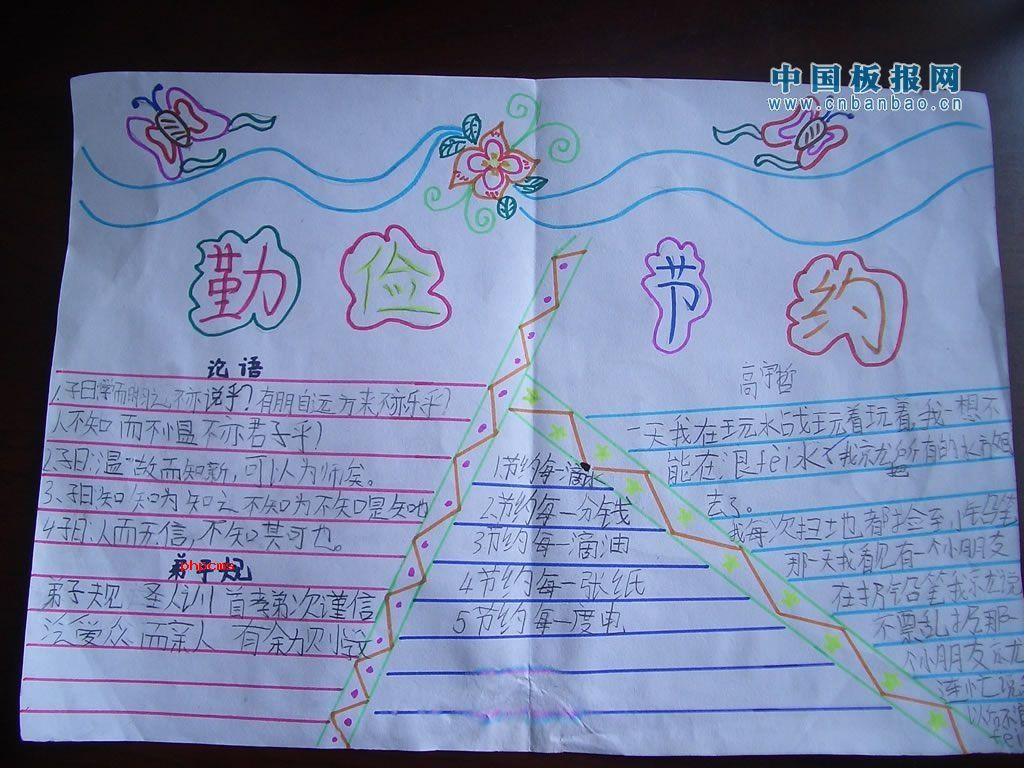 中国板报网
www.cnbanbao.cn
勤俭
节约
论语
1.子曰学而时习之不亦说乎？有朋自远方来不亦乐乎？
人不知而不愠不亦君子乎！
2.子曰：温故而知新，可以为师矣。
3、子曰知知为知之不知为不知是知也
4子曰：人而无信，不知其可也。
弟子规
phpcms
弟子规 圣人训 首孝弟次谨信
泛爱众而亲人 有余力则学
1节约每一滴水
2节约每一分钱
3节约每一滴油
4节约每一张纸
5节约每一度电
高宇哲
一天我在玩水占戈玩着玩着,我一想不
能在浪fèi水了我京尤把所有的水
去了。
我每次扫地都捡到小铅笔
那一天我看见有一个小朋友
在扔铅笔我京尤说
不要乱扔那一
个小朋友京尤
连忙说
以后不浪
fèi